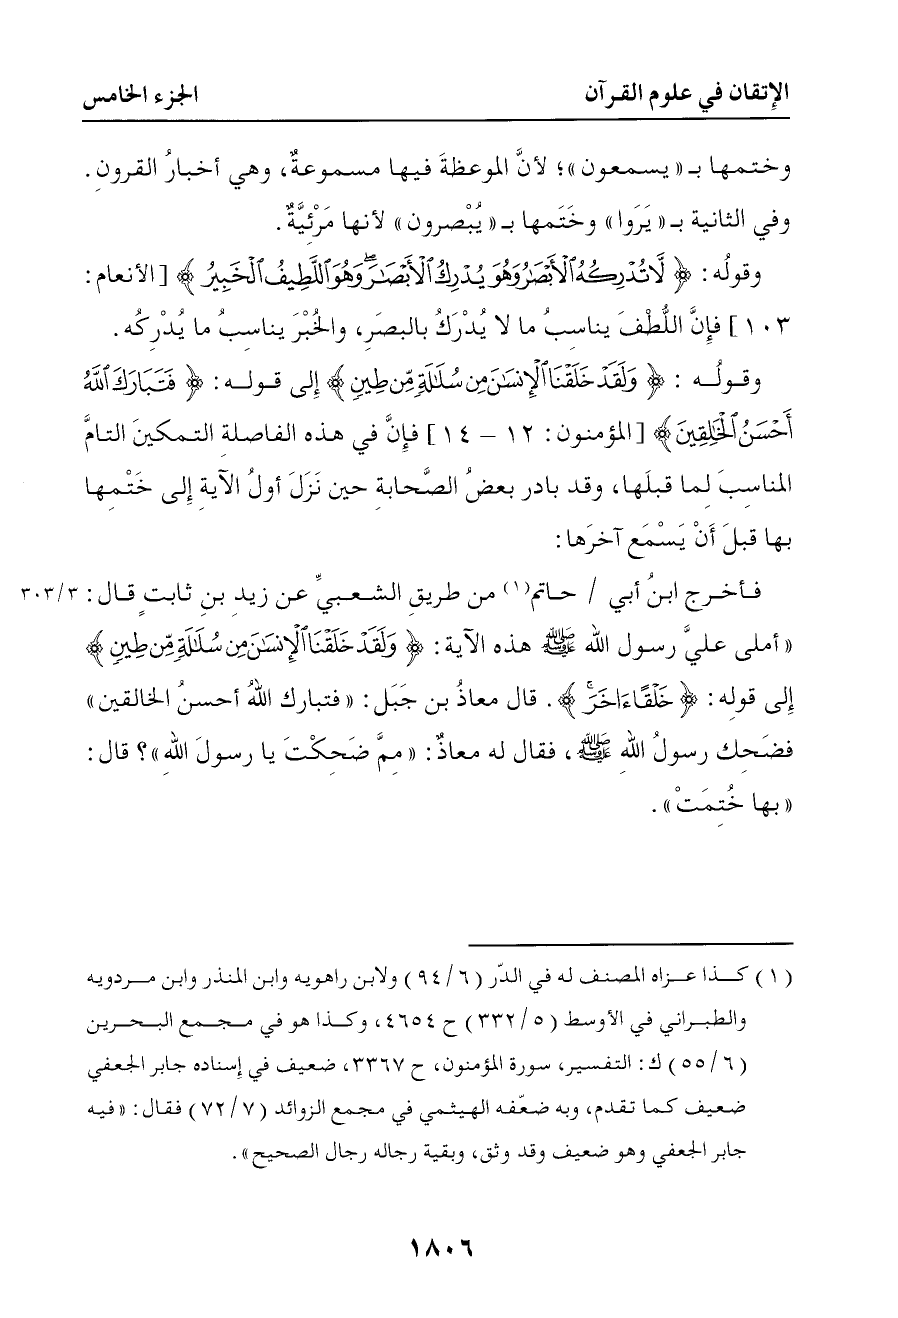 الإتقان في علوم القرآن الجزء الخامس
وختمها بـ «يسمعون»؛ لأنَّ الموعظةَ فيها مسموعةٌ، وهي أخبارُ القرونِ.
وفي الثانية بـ «يَرَوا» وخَتَمها بـ «يُبْصرون» لأنها مَرْئيَّةٌ.
وقولُه: ﴿ لَّا تُدْرِكُهُ ٱلْأَبْصَٰرُ وَهُوَ يُدْرِكُ ٱلْأَبْصَٰرَ ۖ وَهُوَ ٱللَّطِيفُ ٱلْخَبِيرُ ﴾ [الأنعام:
١٠٣] فإنَّ اللُّطْفَ يناسبُ ما لا يُدْرَكُ بالبصَرِ، والخُبْرَ يناسبُ ما يُدْرِكُه.
وقولُه: ﴿ وَلَقَدْ خَلَقْنَا ٱلْإِنسَٰنَ مِن سُلَٰلَةٍ مِّن طِينٍ ﴾ إلى قوله: ﴿ فَتَبَارَكَ ٱللَّهُ
أَحْسَنُ ٱلْخَٰلِقِينَ ﴾ [المؤمنون: ١٢ – ١٤] فإنَّ في هذه الفاصلةِ التمكينَ التامَّ
المناسِبَ لِما قبلَها، وقد بادر بعضُ الصَّحابةِ حين نَزَلَ أولُ الآيةِ إلى خَتْمِها
بها قبلَ أَنْ يَسْمَع آخرَها:
فأخرج ابنُ أبي / حاتم(١) من طريق الشعبيِّ عن زيدِ بنِ ثابتٍ قال: ٣٠٣/٣
«أملى عليَّ رسول الله ﷺ هذه الآية: ﴿ وَلَقَدْ خَلَقْنَا ٱلْإِنسَٰنَ مِن سُلَٰلَةٍ مِّن طِينٍ ﴾
إلى قولِه: ﴿ خَلْقًا ءَاخَرَ ۚ ﴾. قال معاذُ بن جَبَل: «فتبارك اللهُ أحسنُ الخالقين»
فضَحِك رسولُ الله ﷺ، فقال له معاذٌ: «مِمَّ ضَحِكْتَ يا رسولَ الله»؟ قال:
«بها خُتِمَتْ».
(١) كذا عزاه المصنف له في الدّر (٩٤/٦) ولابن راهويه وابن المنذر وابن مردويه
والطبراني في الأوسط (٣٣٢/٥) ح ٤٦٥٤، وكذا هو في مجمع البحرين
(٥٥/٦) ك: التفسير، سورة المؤمنون، ح ٣٣٦٧، ضعيف في إسناده جابر الجعفي
ضعيف كما تقدم، وبه ضعّفه الهيثمي في مجمع الزوائد (٧٢/٧) فقال: «فيه
جابر الجعفي وهو ضعيف وقد وثق، وبقية رجاله رجال الصحيح».
١٨٠٦